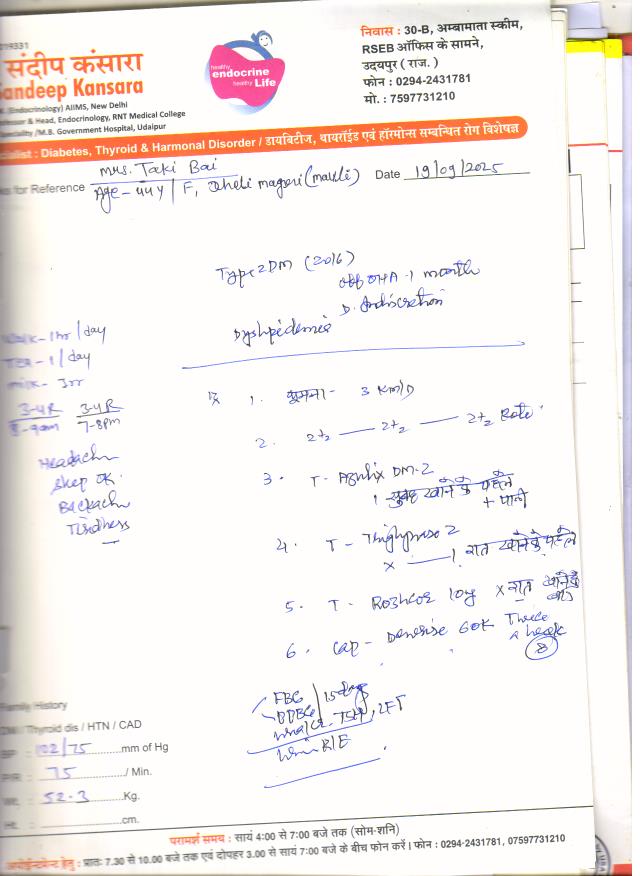 19331
संदीप कंसारा
andeep Kansara
(Endocrinology) AIIMS, New Delhi
& Head, Endocrinology, RNT Medical College
/M.B. Government Hospital, Udaipur
healthy
endocrine
healthy Life
निवास : 30-B, अम्बामाता स्कीम,
RSEB ऑफिस के सामने,
उदयपुर ( राज. )
फोन : 0294-2431781
मो. : 7597731210
: Diabetes, Thyroid & Harmonal Disorder / डायबिटीज, थायरॉईड एवं हॉरमोन्स सम्बन्धित रोग विशेषज्ञ
for Reference Mrs. Taki Bai
Age - 44Y / F, Date 19/09/2025
Type 2 DM (2016)
OHA - 1 month
D. Indiscretion
Dyslipidemia
Walk - 1hr / day
Tea - 1 / day
milk -
3-4R 3-4R
8-9am 7-8pm
Headache
Sleep OK.
Backache
Tiredness
Rx 1. घूमना - 3 KM/D
2. 2+2 — 2+2 — 2+2 Rote
3. T - DM-2
1 - सुबह खाने के पहले
+ पानी
4. T - 2
x — 1 रात खाने के पहले
5. T - 10mg x रात खाने के बाद
6. Cap - 60K
a week
8
FBG / 15 days
PPBG
TSH, LFT
R/E
Family History
DM / Thyroid dis / HTN / CAD
BP : 102/75 mm of Hg
P/R : 75 / Min.
Wt. : 52.3 Kg.
Ht. : cm.
परामर्श समय : सायं 4:00 से 7:00 बजे तक (सोम-शनि)
अपोईन्टमेन्ट हेतु : प्रातः 7.30 से 10.00 बजे तक एवं दोपहर 3.00 से सायं 7:00 बजे के बीच फोन करें। फोन : 0294-2431781, 07597731210